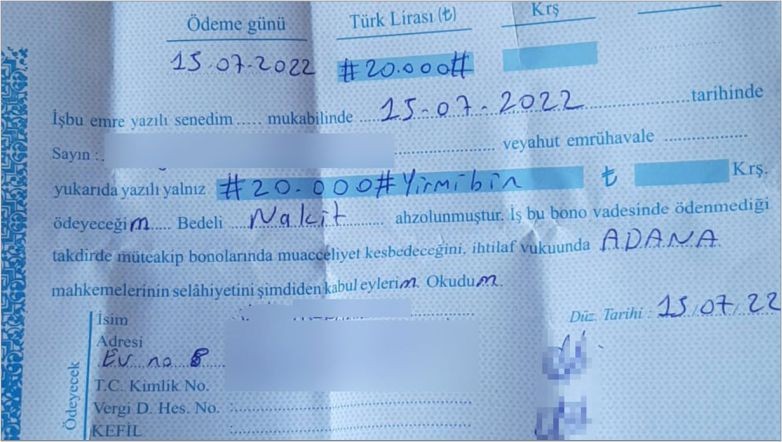 Ödeme günü Türk Lirası (₺) Krş
15.07.2022 #20.000#
İşbu emre yazılı senedim ..... mukabilinde 15-07-2022 tarihinde
Sayın : veyahut emrühavale
yukarıda yazılı yalnız #20.000#Yirmibin ₺ Krş.
ödeyeceğim.... Bedeli Nakit ahzolunmuştur. İş bu bono vadesinde ödenmediği
takdirde müteakip bonolarında muacceliyet kesbedeceğini, ihtilaf vukuunda ADANA
mahkemelerinin selâhiyetini şimdiden kabul eylerim. Okudum.
Düz. Tarihi : 15/07/22
Ödeyecek
İsim
Adresi
Ev no 8
T.C. Kimlik No.
Vergi D. Hes. No. :
KEFİL